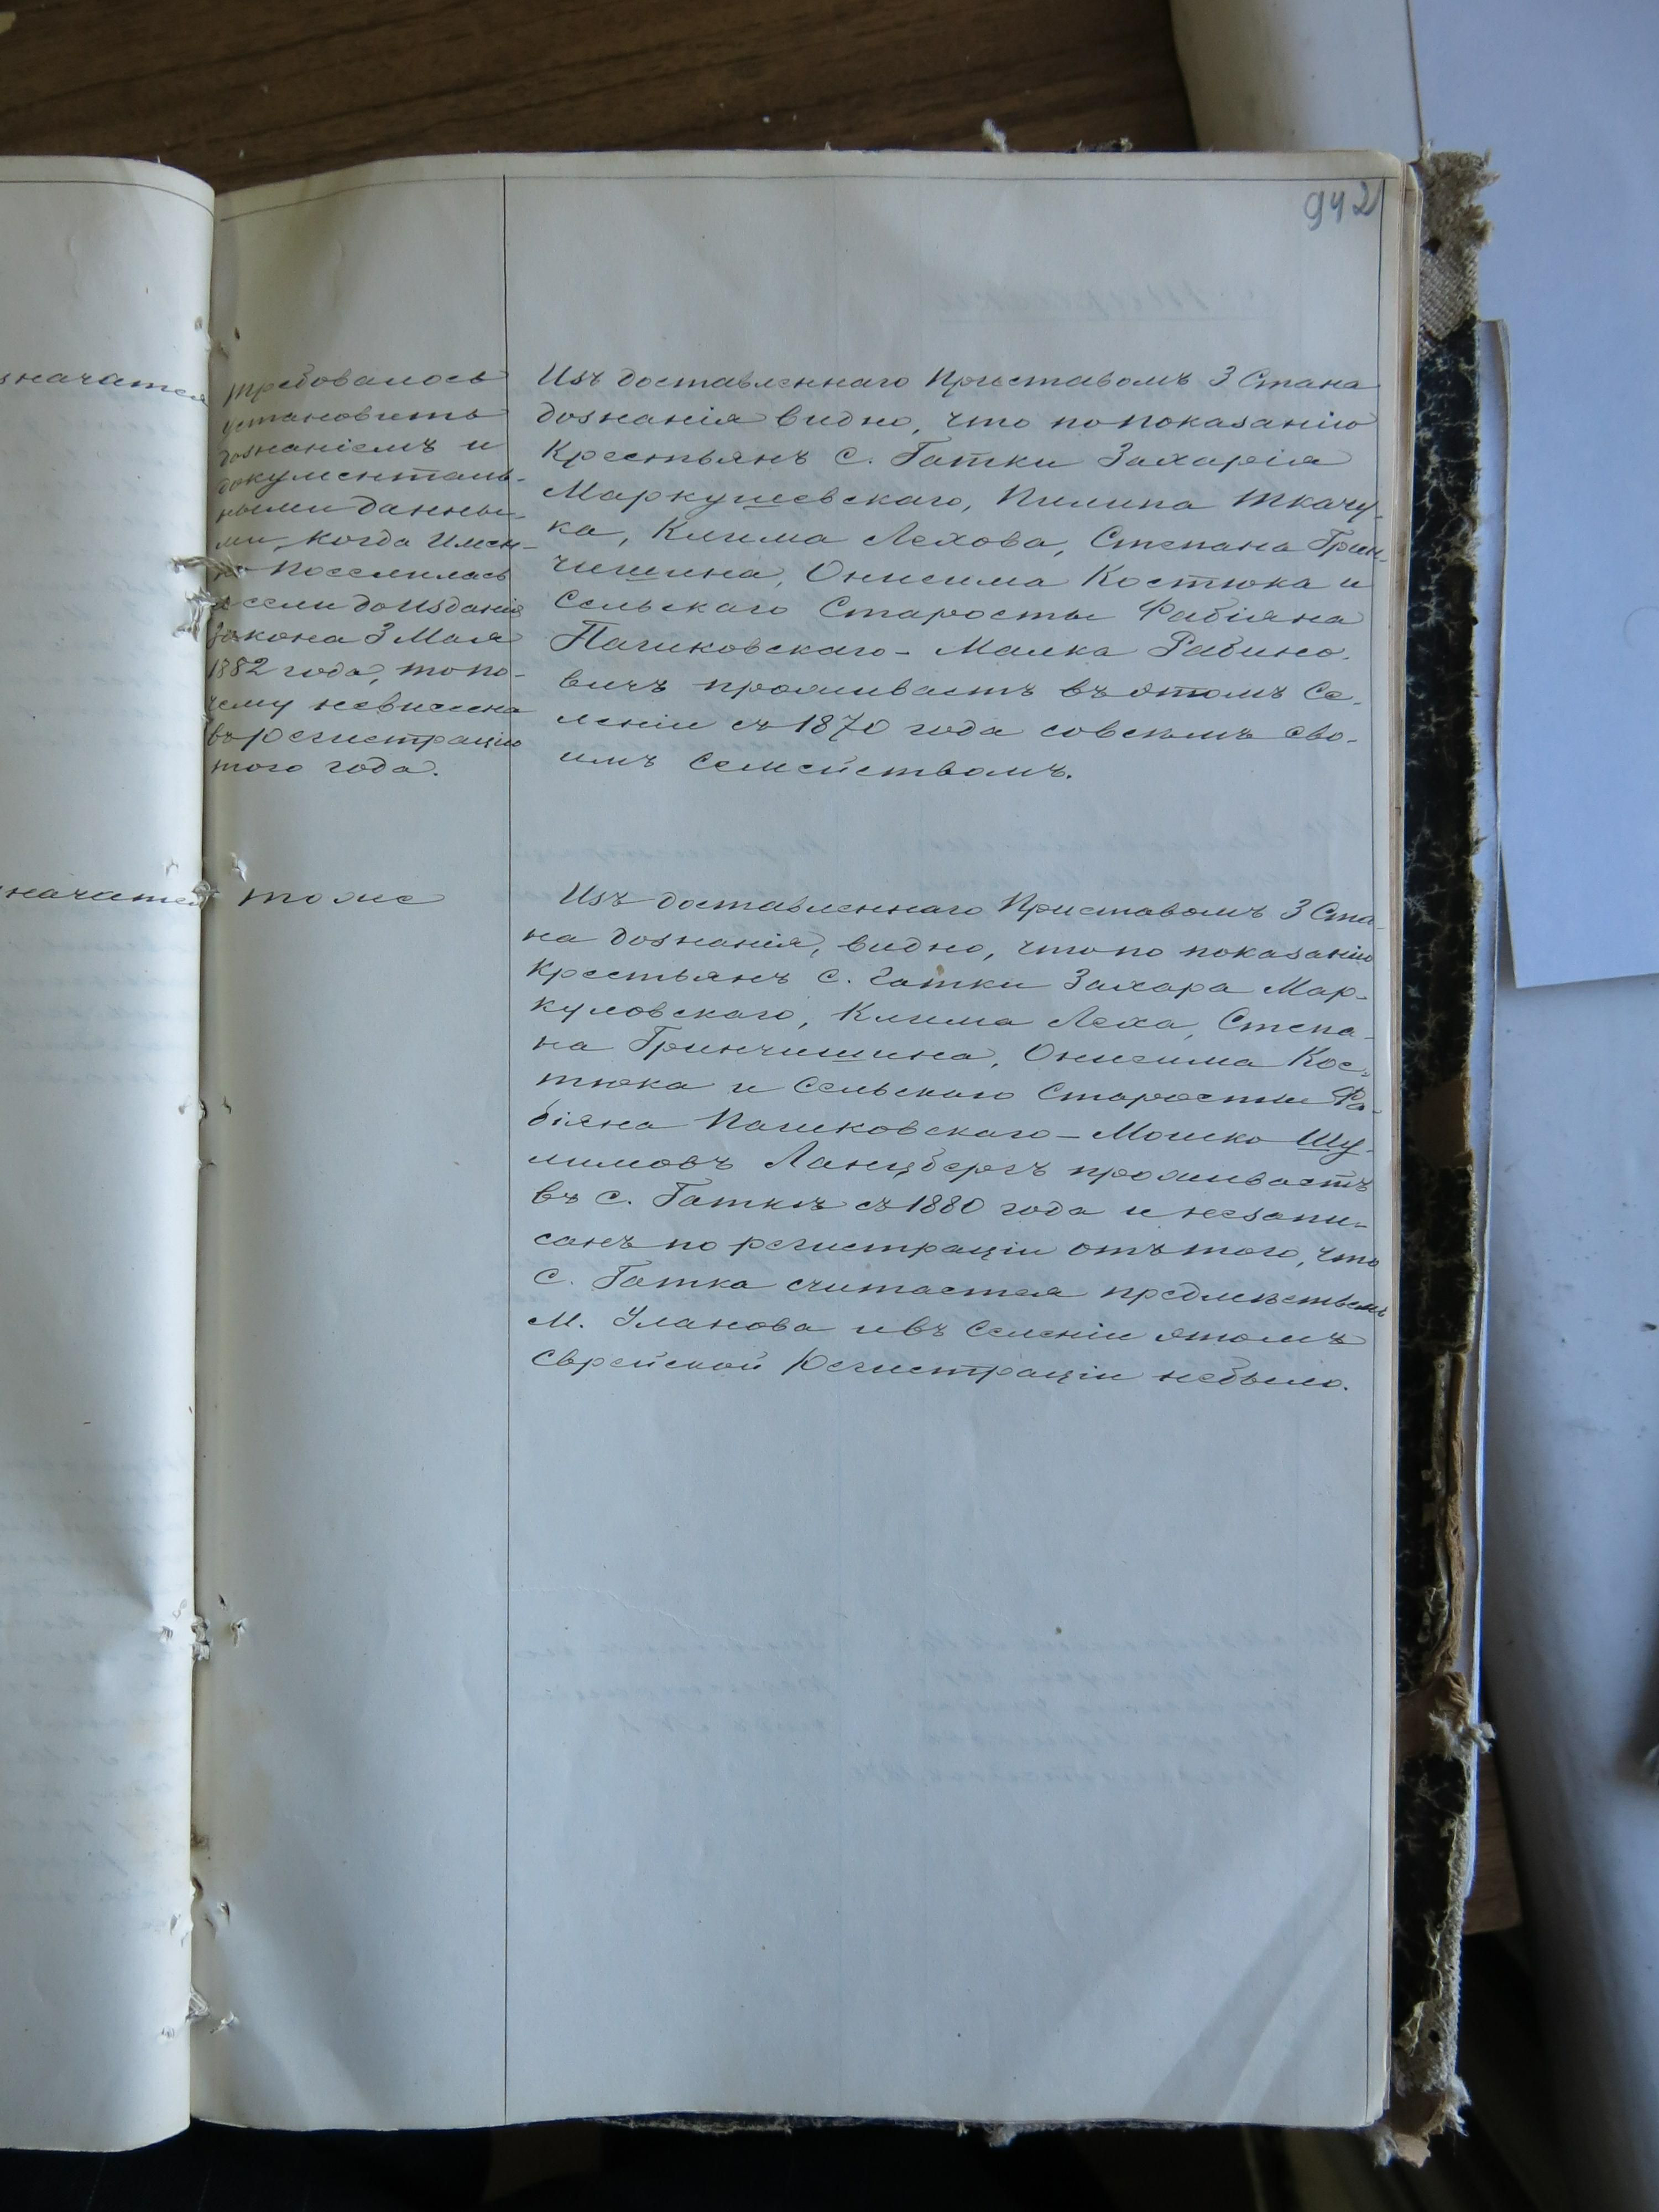 942
значатся
требовалось
установить
дознаніемъ и
документаль-
ными данны-
ми, когда имен-
но поселилась
и если до изданія
Закона 3 Мая
1882 года, то по-
чему невписана
въ регистрацію
того года.
Изъ доставленнаго Приставомъ 3 Стана
дознанія видно, что по показанію
Крестьянъ с. Гатки Захарія
Маркушевскаго, Пилипа Ткачу-
ка, Клима Лехова, Степана Грин-
чишина, Онисима Костюка и
Сельскаго Старосты Фабіяна
Пашковскаго - Малка Рабино-
вичъ проживаетъ въ этомъ Се-
леніи съ 1870 года совсемъ сво-
имъ Семействомъ.
значатся
тоже
Изъ доставленнаго Приставомъ 3 Ста-
на дознанія, видно, что по показанію
Крестьянъ с. Гатки Захара Мар-
куловскаго, Клима Леха, Степа-
на Гринчишина, Онисима Кос-
тюка и Сельскаго Старосты Фа-
біяна Пашковскаго - Мошко Шу-
лимовъ Ланцбергъ проживаетъ
въ с. Гаткѣ съ 1880 года и незапи-
санъ по регистраціи отъ того, что
с. Гатка считается предмѣстьемъ
м. Уланова и въ Селеніи этомъ
Еврейской Регистраціи небыло.